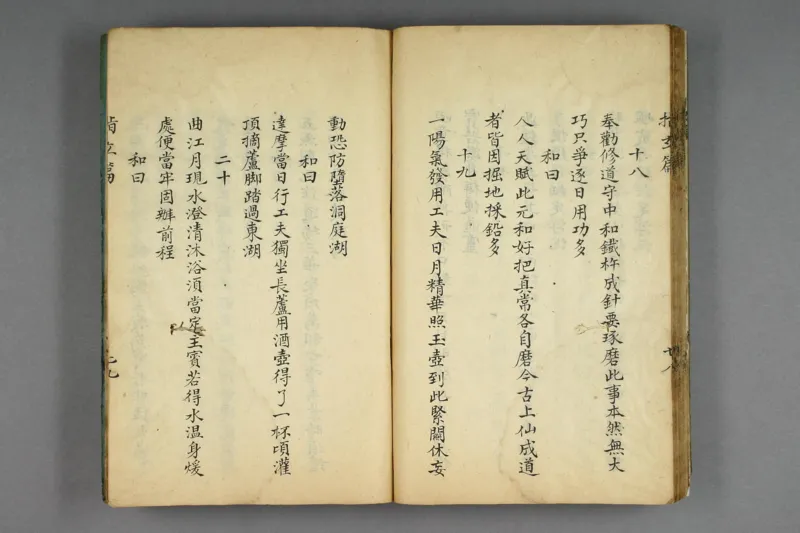 指玄篇
廿八
十八
奉勸修道守中和鐵杵成針要琢磨此事本然無大
巧只爭逐日用功多
和曰
人人天賦此元和好把真常各自磨今古上仙成道
者皆因掘地採鉛多
十九
一陽氣發用工夫日月精華照玉壺到此緊關休妄
動恐防墮落洞庭湖
和曰
達摩當日行工夫獨坐長蘆用酒壺得了一杯項灌
頂摘蘆脚踏過東湖
二十
曲江月現水澄清沐浴須當定主賓若得水溫身煖
處便當牢固辦前程
和曰
指玄篇
廿九